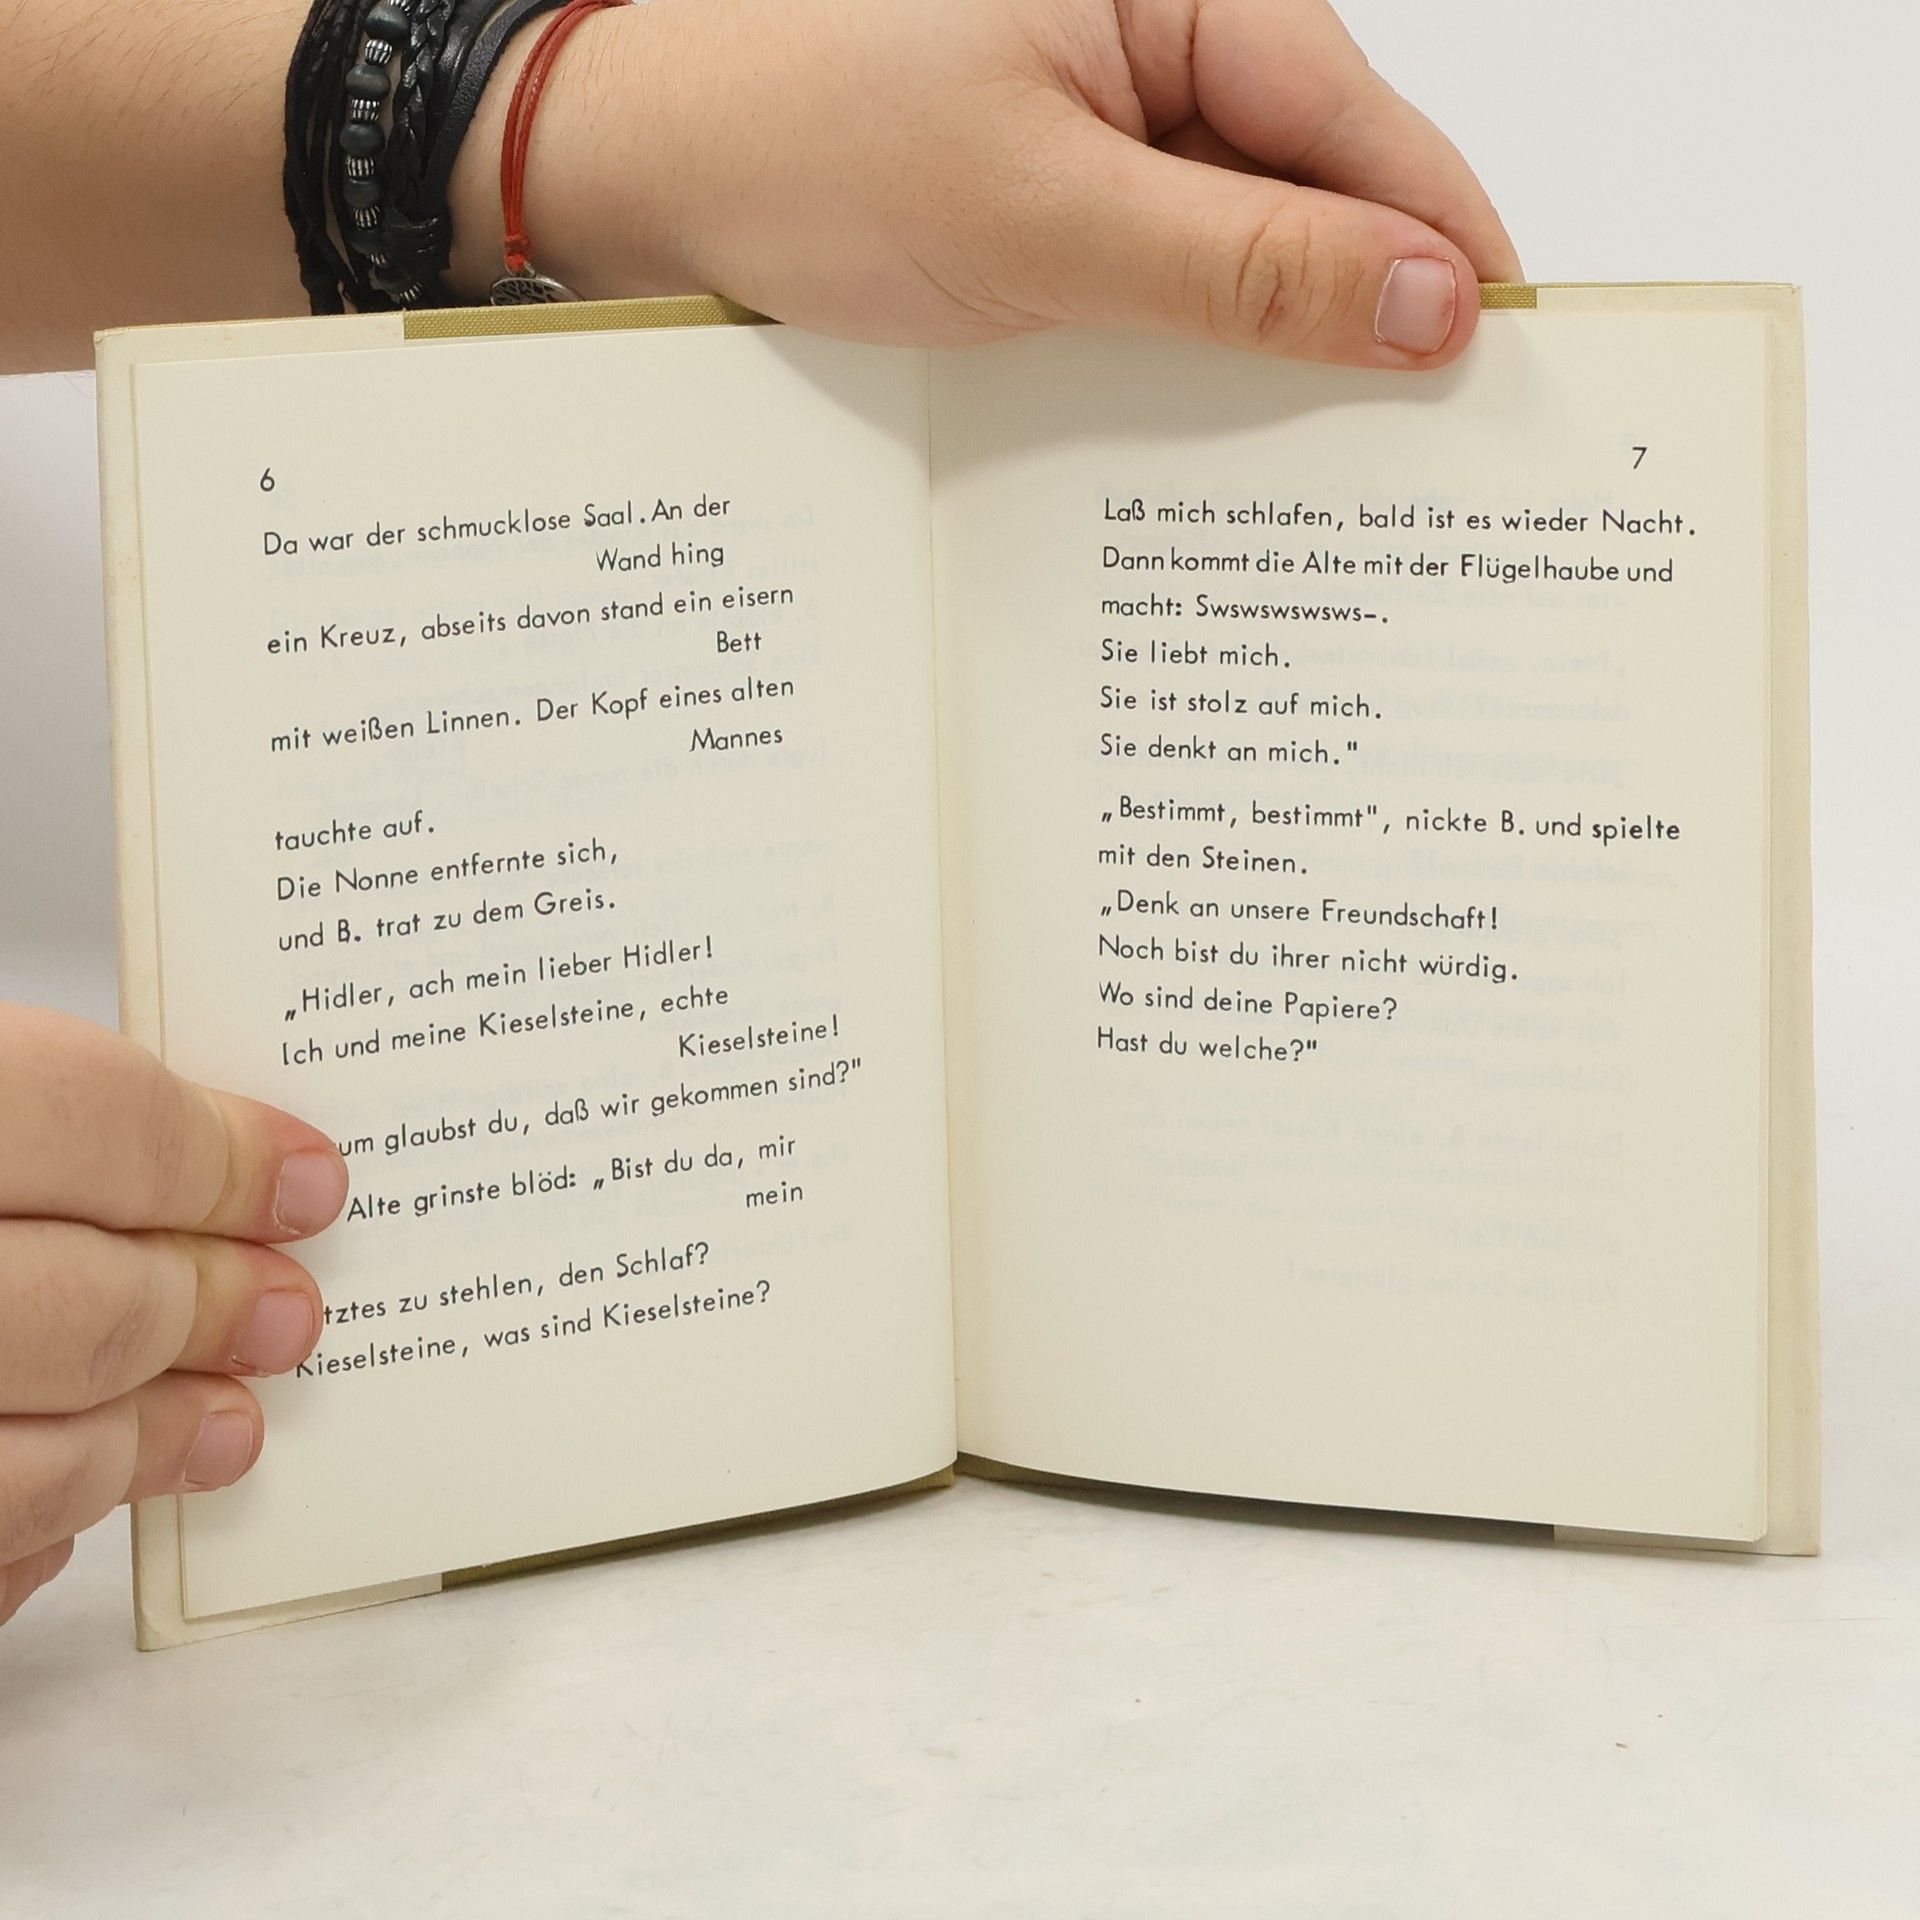 6
Da war der schmucklose Saal. An der
Wand hing
ein Kreuz, abseits davon stand ein eisern
Bett
mit weißen Linnen. Der Kopf eines alten
Mannes
tauchte auf.
Die Nonne entfernte sich,
und B. trat zu dem Greis.
„Hidler, ach mein lieber Hidler!
Ich und meine Kieselsteine, echte
Kieselsteine!
um glaubst du, daß wir gekommen sind?"
Alte grinste blöd: „Bist du da, mir
mein
tztes zu stehlen, den Schlaf?
Kieselsteine, was sind Kieselsteine?
7
Laß mich schlafen, bald ist es wieder Nacht.
Dann kommt die Alte mit der Flügelhaube und
macht: Swswswswsws–.
Sie liebt mich.
Sie ist stolz auf mich.
Sie denkt an mich."
„Bestimmt, bestimmt", nickte B. und spielte
mit den Steinen.
„Denk an unsere Freundschaft!
Noch bist du ihrer nicht würdig.
Wo sind deine Papiere?
Hast du welche?"